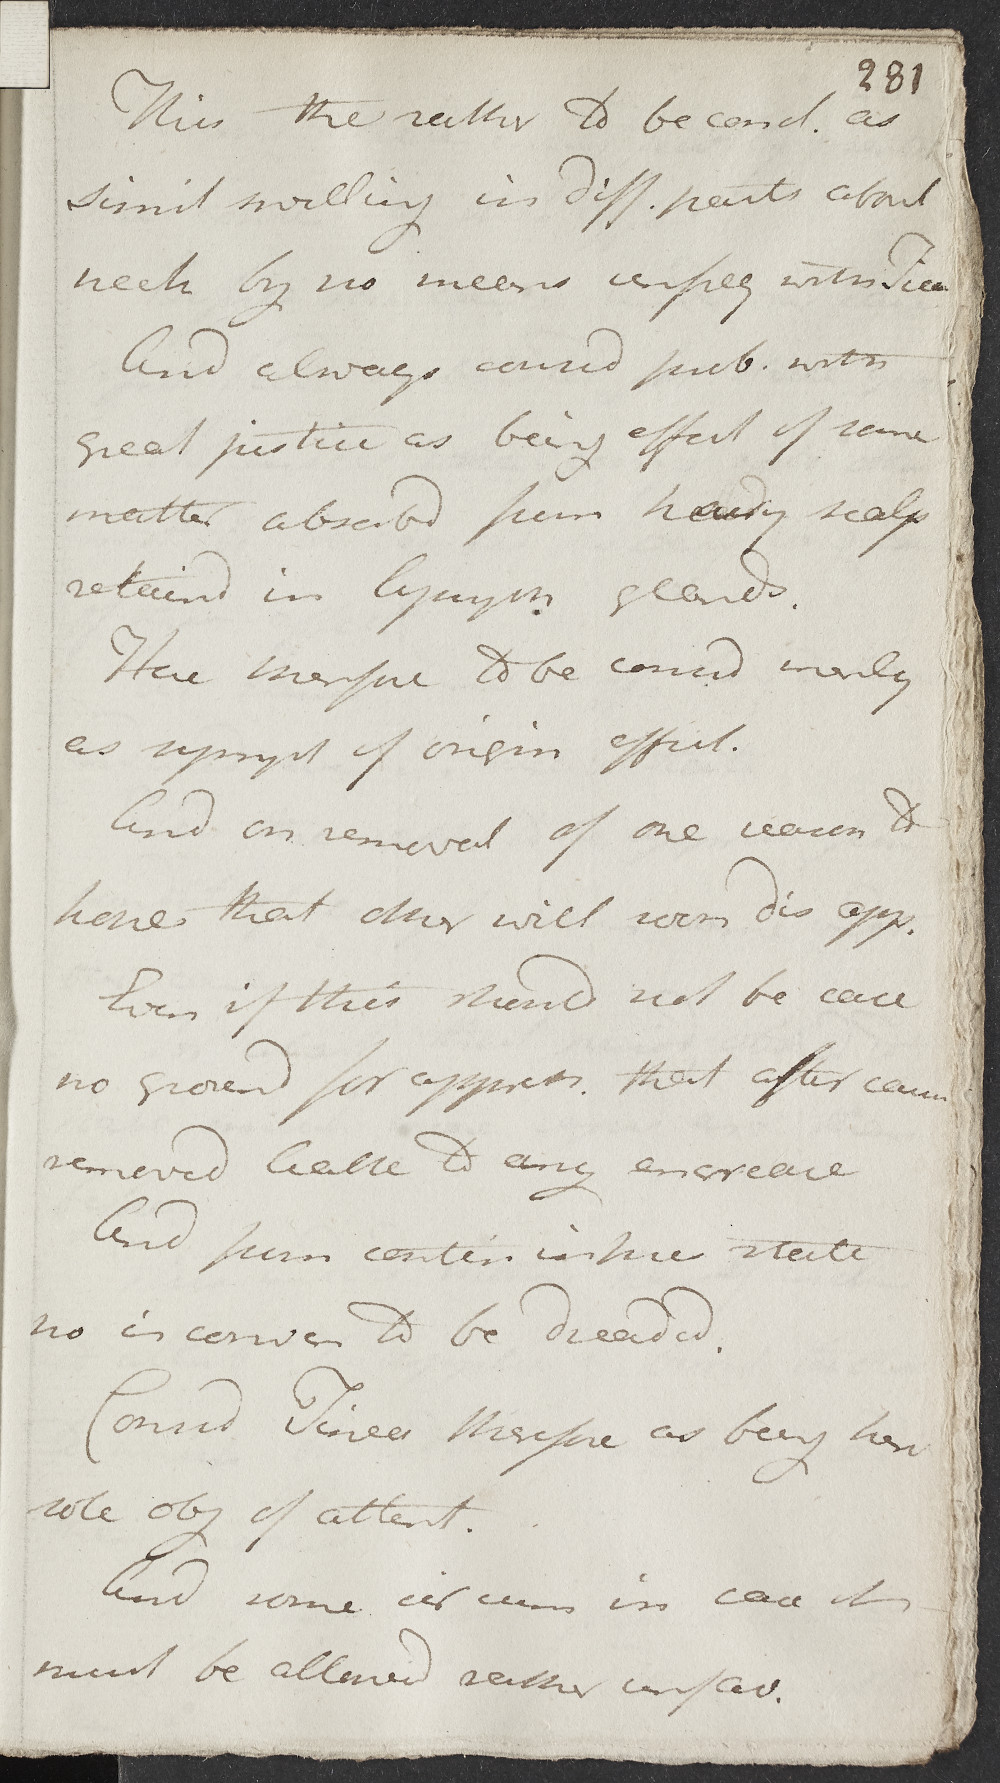 281
This the rather to be consd. as
simil swelling in diff. parts about
neck by no means unfreq with Tin
And always consid prob. with
great justice as being effect of some
matter absorbd from hairy scalp
retaind in lymph. glands.
Here therefore to be consid merely
as sympt of origin affect.
And on removal of one reason to
hope that other will soon dis app.
Even if this should not be case
no ground for appreh. that after caus
removed liable to any encrease
And from contin in pres state
no inconven to be dreaded.
Consid Tinea therefore as being here
sole obj of attent.
And some circum in case
must be allowed rather unfav.